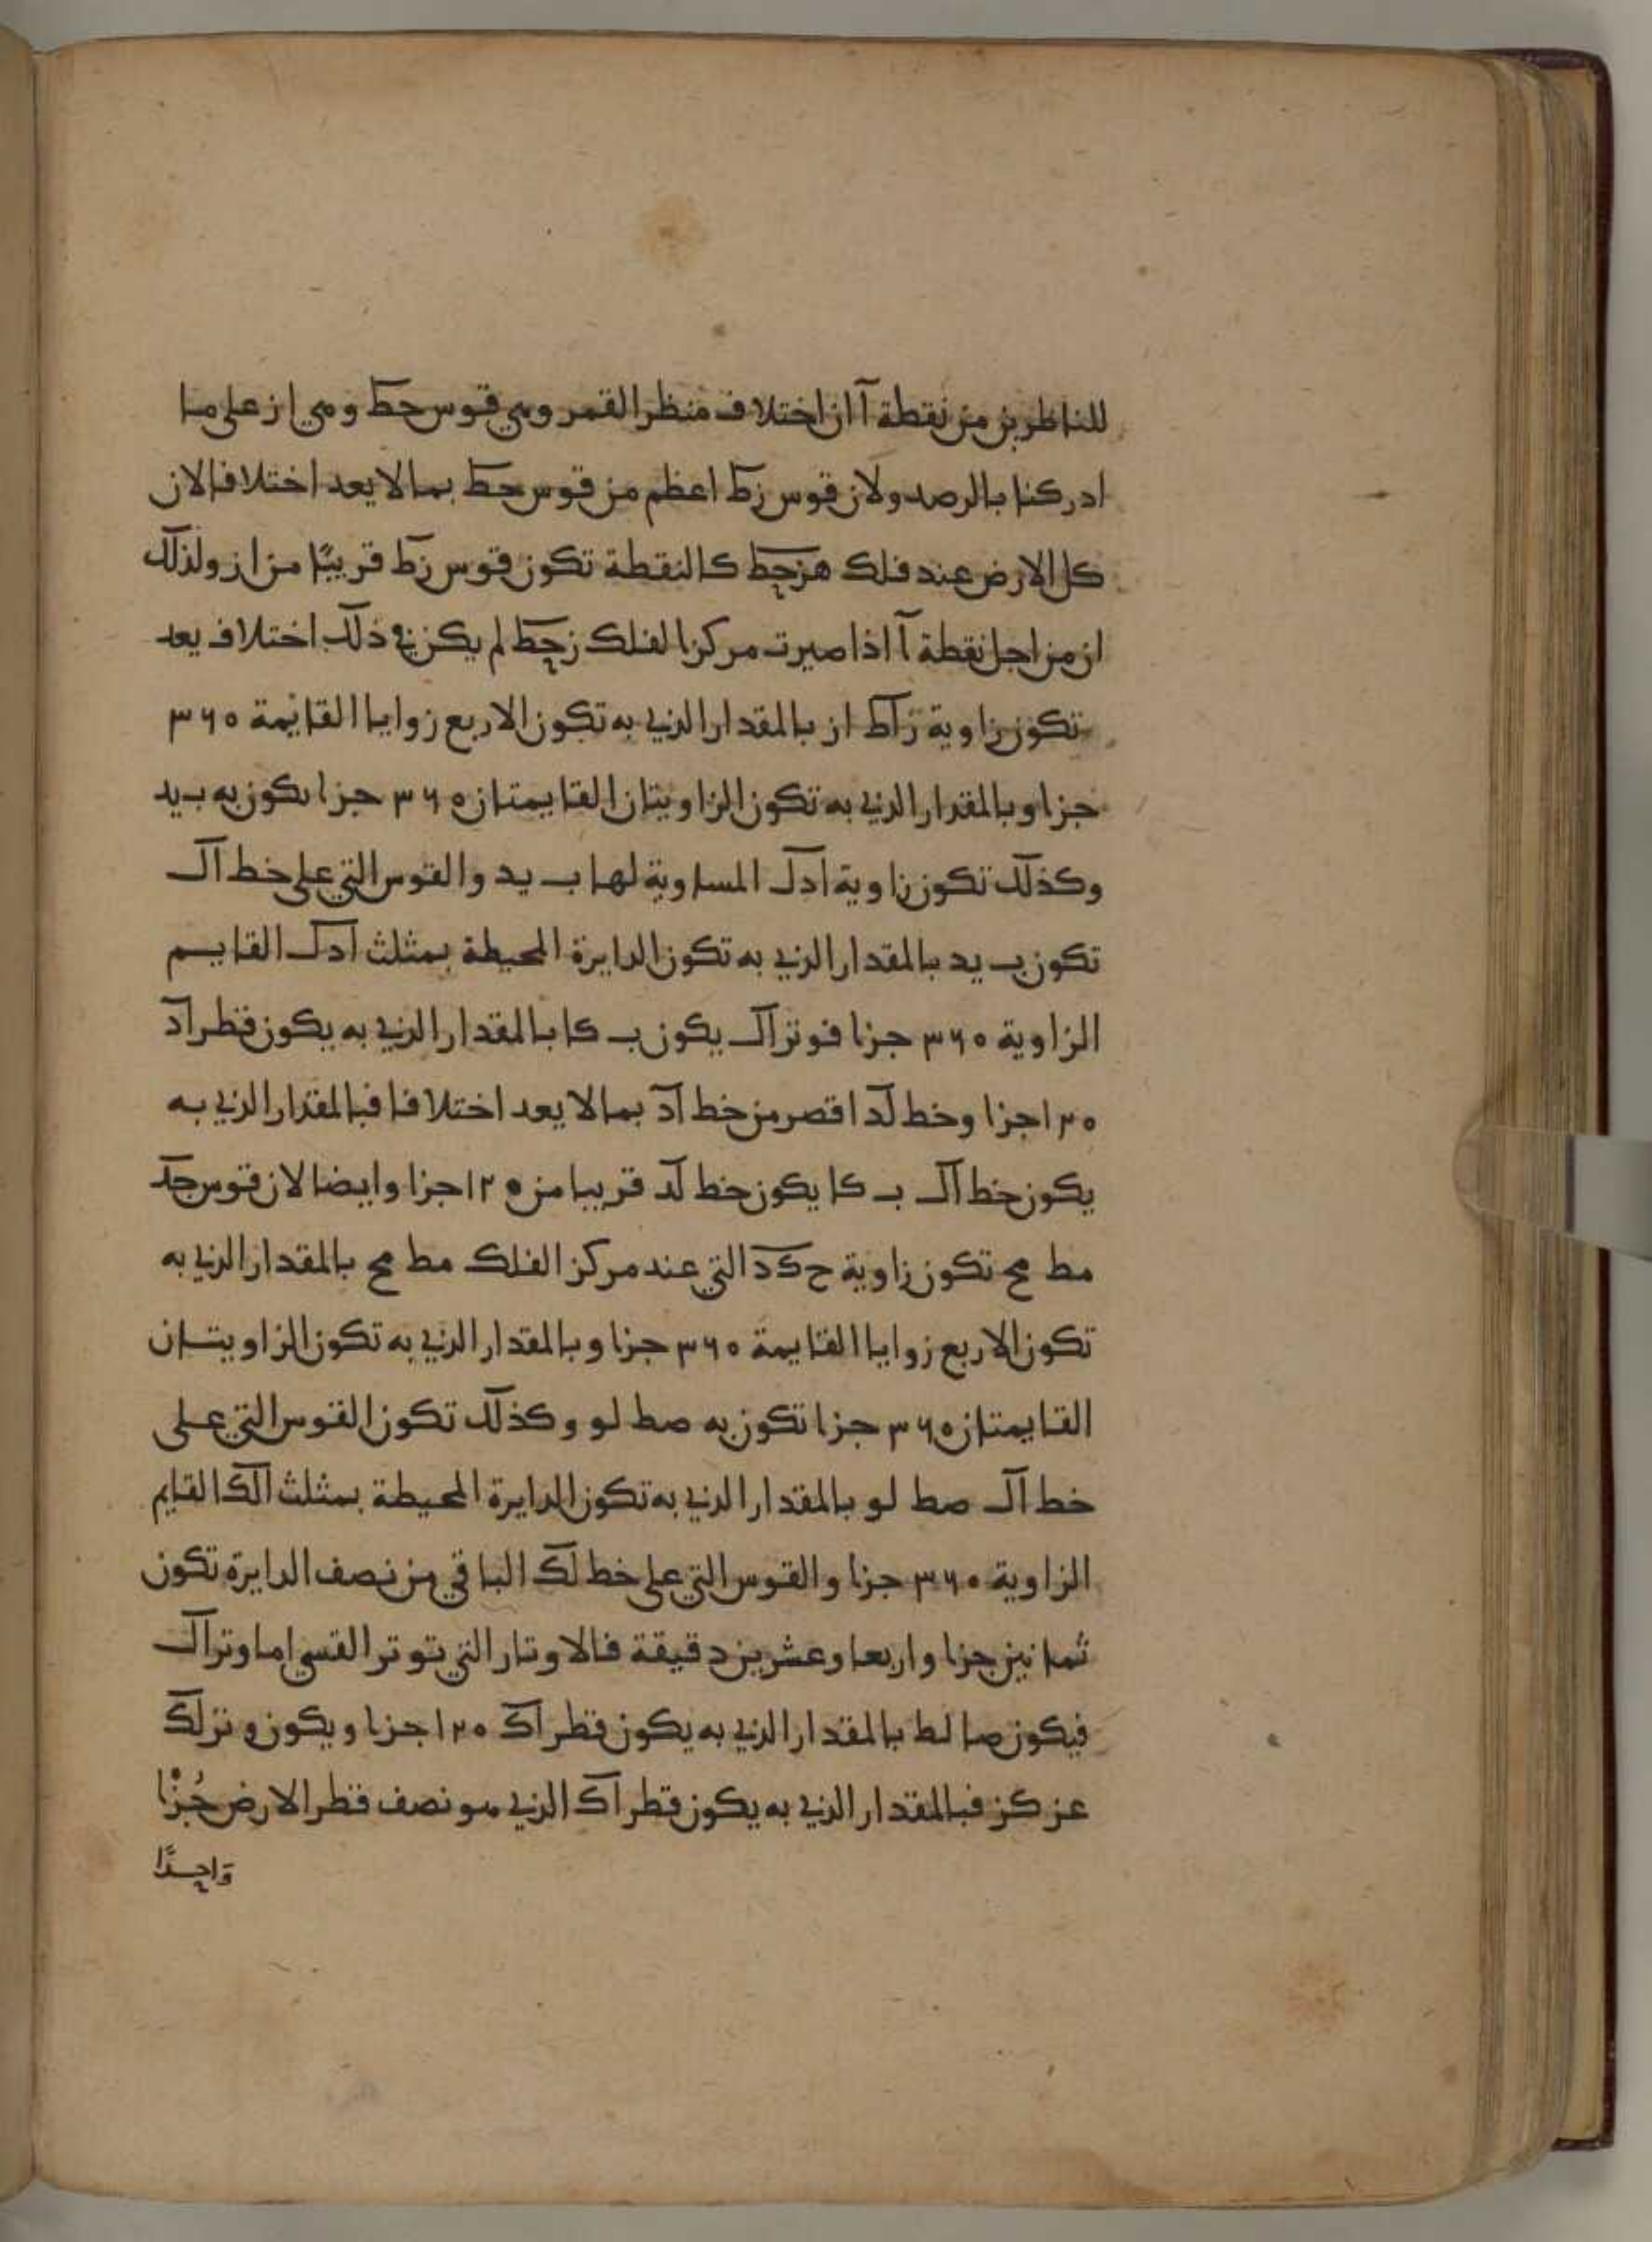 للناظرين من نقطة آ ان اختلاف منظر القمر وهي قوس حط وهي ا ز على ما
ادركنا بالرصد ولان قوس زط اعظم من قوس حط بما لا يعد اختلافا لان
كل الارض عند فلك هزحط كالنقطة تكون قوس زط قريبًا من ا ز ولذلك
ان من اجل نقطة آ اذا صيرت مركز الفلك زحط لم يكن في ذلك اختلاف يعد
تكون زاوية زاط ا ز بالمقدار الذي به تكون الاربع زوايا القائمة ٣٦٠
جزا وبالمقدار الذي به تكون الزاويتان القايمتان ٣٦٠ جزا يكون به ب يد
وكذلك تكون زاوية ادل المساوية لها ب يد والقوس التي على خط ال
تكون ب يد بالمقدار الذي به تكون الدايرة المحيطة بمثلث ادل القايم
الزاوية ٣٦٠ جزا فوتر ال يكون ب كا بالمقدار الذي به يكون قطر اد
١٢٠ جزا وخط لد اقصر من خط اد بما لا يعد اختلافا فبالمقدار الذي به
يكون خط ال ب كا يكون خط لد قريبا من ١٢٠ جزا وايضا لان قوس جد
مط مح تكون زاوية ح ك د التي عند مركز الفلك مط مح بالمقدار الذي به
تكون الاربع زوايا القايمة ٣٦٠ جزا وبالمقدار الذي به تكون الزاويتان
القايمتان ٣٦٠ جزا تكون به صط لو وكذلك تكون القوس التي على
خط ال صط لو بالمقدار الذي به تكون الدايرة المحيطة بمثلث الك القايم
الزاوية ٣٦٠ جزا والقوس التي على خط لك الباقي من نصف الدايرة تكون
ثمانين جزا واربعا وعشرين دقيقة فالاوتار التي توتر القسي اما وتر ال
فيكون صا لط بالمقدار الذي به يكون قطر اك ١٢٠ جزا ويكون وتر لك
عز كز فبالمقدار الذي به يكون قطر اك الذي هو نصف قطر الارض جُزْا
وَاحِدًا